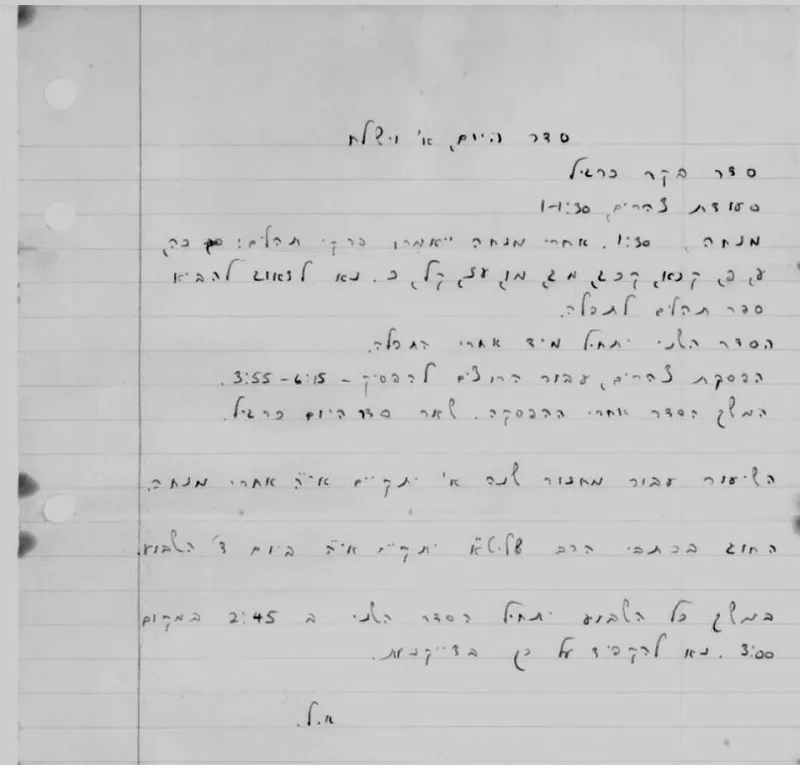 סדר היום, א' וישלח
סדר בקר כרגיל
סעודת צהרים, 1-1:30
מנחה, 1:30. אחרי מנחה ייאמרו פרקי תהלים: כה,
ע, פ, קכא, קכג, מג, מו, עד, קל, כ. נא לדאוג להביא
ספר תהלים לתפלה.
הסדר השני יתחיל מיד אחרי התפלה.
הפסקת צהרים, עבור הרוצים להפסיק - 3:55-6:15.
המשך הסדר אחרי ההפסקה. שאר סדר היום כרגיל.
השיעור עבור מחזור שנה א' יתקיים אי"ה אחרי מנחה.
החוג בכתבי הרב שליט"א יתקיים אי"ה ביום ד' השבוע.
במשך כל השבוע יתחיל הסדר השני ב 2:45 במקום
3:00. נא להקפיד על כך בדייקנות.
א.ל.